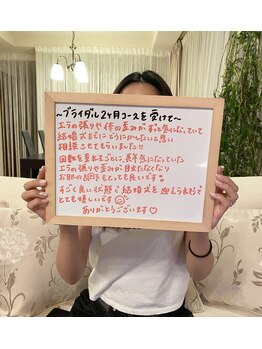 ～ブライダル2ヶ月コースを受けて～
エラの張りや体の歪みがずっと気になっていて
結婚式までにどうにかしたいと思い
相談させてもらいました!!
回数を重ねるごとに、長年気になっていた
エラの張りや歪みが目立たなくなり
お肌の調子もとっても良いです
すごく良い状態で結婚式を迎えられそうで
とても嬉しいです
ありがとうございます♡